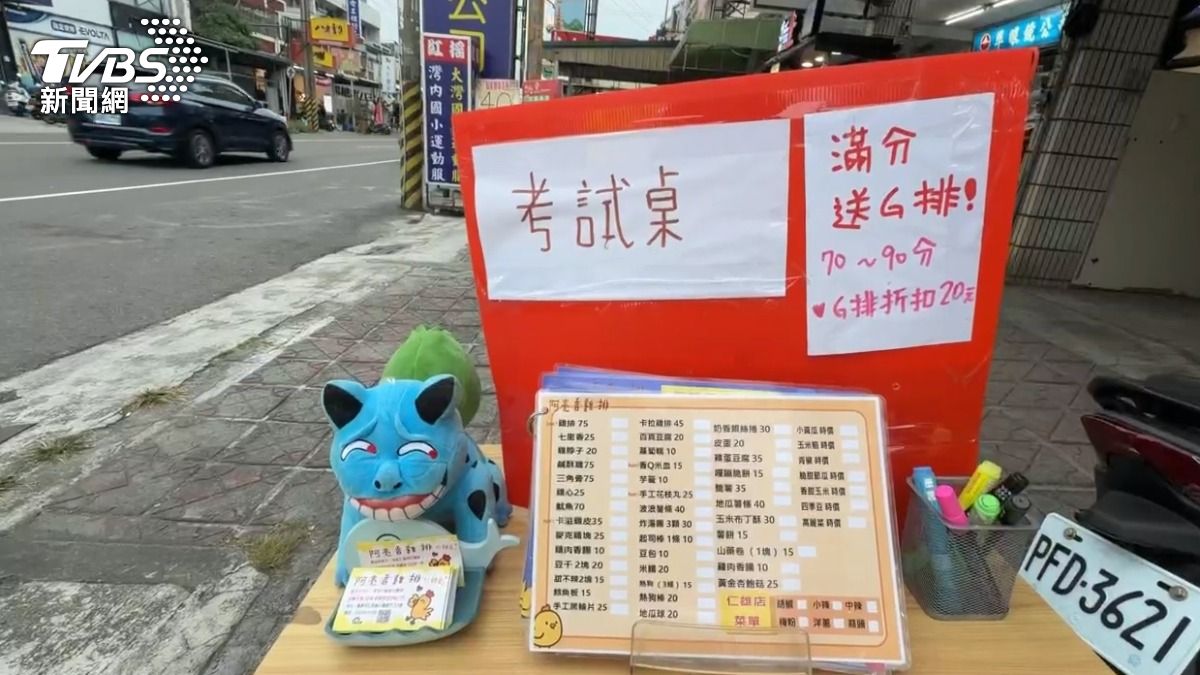 TVBS
新聞網
EVOLTA
公司
紅檔
大灣國
灣內國小運動服
考試桌
滿分
送G排!
70~90分
♥G排折扣20元
雞排 75
七里香25
雞脖子 20
鹹酥雞75
三角骨75
雞心25
魷魚70
卡滋雞皮35
麥克雞塊 25
雞肉香腸 10
豆干 2塊 20
甜不辣2塊 15
鱈魚板 15
手工黑輪片 25
卡拉雞排 45
百頁豆腐 20
蘿蔔糕 10
香Q米血 15
芋籤 10
手工花枝丸 25
波浪薯條 40
炸湯圓 3顆 30
起司棒 1條 10
豆包 10
米腸 20
熱狗(3條) 15
熱狗棒 20
地瓜球 20
奶香銀絲捲 30
皮蛋 20
雞蛋豆腐 35
嘿蹦脆餅 15
脆薯 35
地瓜薯條 40
玉米布丁酥 30
薯餅 15
山藥卷(1塊) 15
雞肉香腸 10
黃金杏鮑菇 25
小黃瓜 時價
玉米筍 時價
青椒 時價
脆甜節瓜 時價
香甜玉米 時價
四季豆 時價
高麗菜 時價
仁雄店
菜單
胡椒 小辣 中辣
梅粉 洋蔥 蒜頭
阿亮香雞排
阿亮香雞排
PFD-3621